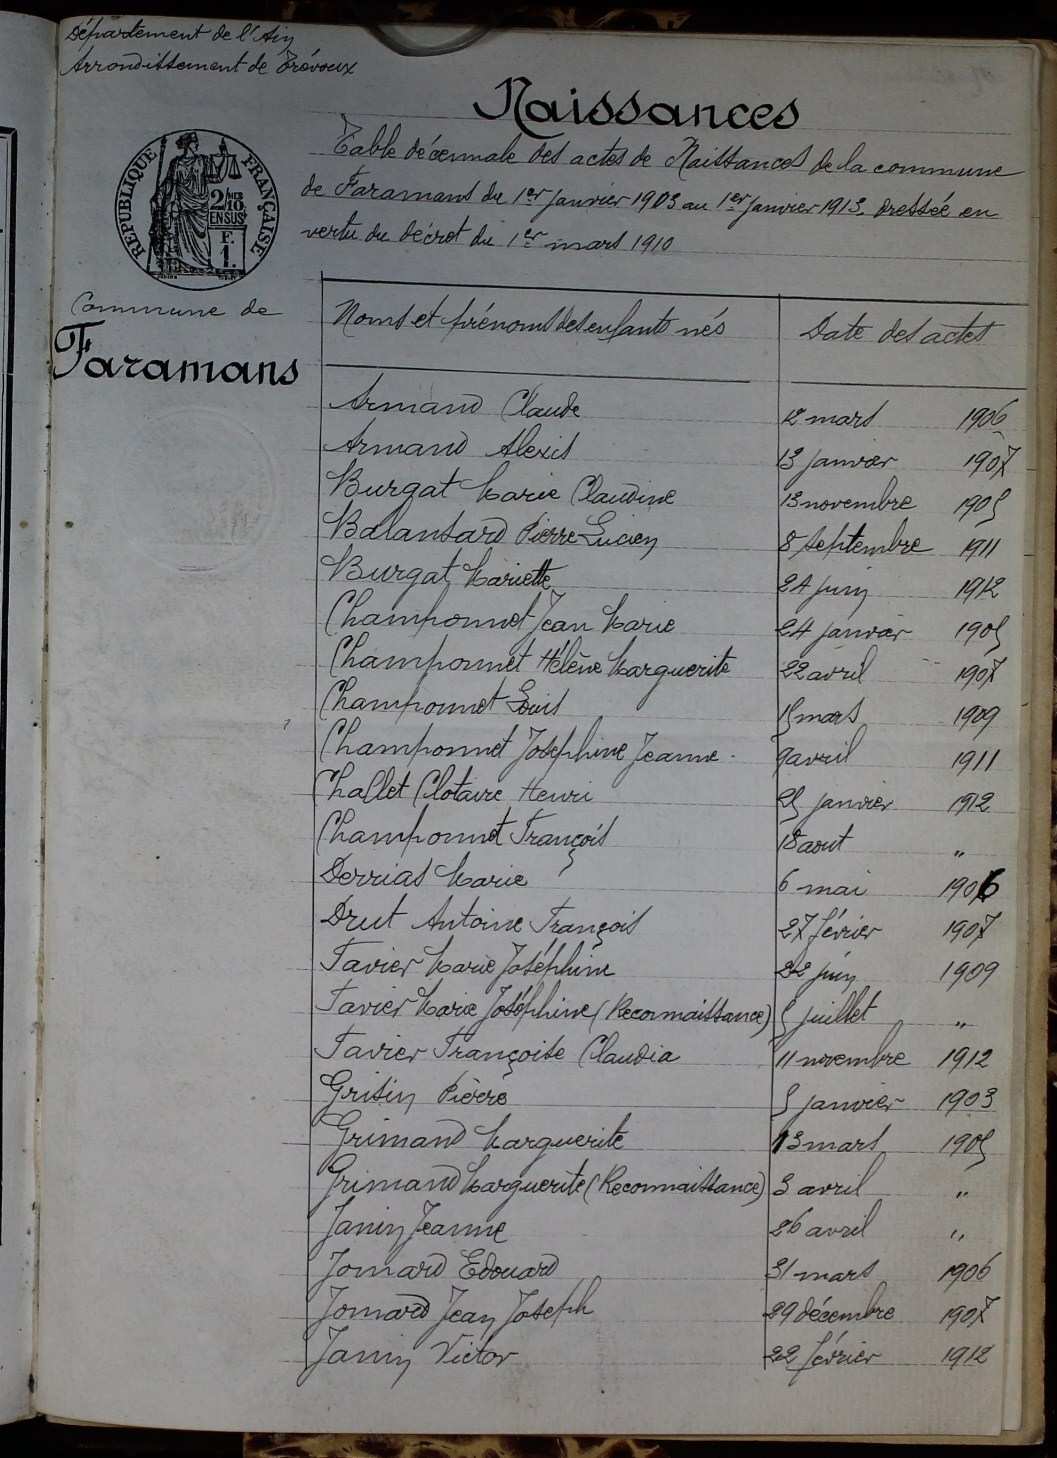 Département de l'Ain
Arrondissement de Trévoux
Naissances
Table décennale des actes de Naissances de la commune
de Faramans du 1er Janvier 1903 au 1er Janvier 1913, dressée en
vertu du décret du 1er mars 1910
RÉPUBLIQUE FRANÇAISE
2/10
EN SUS
F.
1.
Commune de
Faramans
Noms et prénoms des enfants nés Date des actes
Armand Claude 12 mars 1906
Armand Alexis 13 janvier 1907
Burgat Marie Claudine 13 novembre 1905
Balansard Pierre Lucien 8 septembre 1911
Burgat Mariette 24 juin 1912
Champonnet Jean Marie 24 janvier 1905
Champonnet Hélène Marguerite 22 avril 1907
Champonnet Louis 15 mars 1909
Champonnet Joséphine Jeanne 9 avril 1911
Challet Clotaire Henri 25 janvier 1912
Champonnet François 18 aout "
Derrias Marie 6 mai 1906
Drut Antoine François 27 février 1907
Favier Marie Joséphine 22 juin 1909
Favier Marie Joséphine (Reconnaissance) 5 juillet "
Favier Françoise Claudia 11 novembre 1912
Grisin Pierre 5 janvier 1903
Grimand Marguerite 13 mars 1905
Grimand Marguerite (Reconnaissance) 3 avril "
Janin Jeanne 26 avril "
Jomard Edouard 31 mars 1906
Jomard Jean Joseph 29 décembre 1907
Janin Victor 22 février 1912